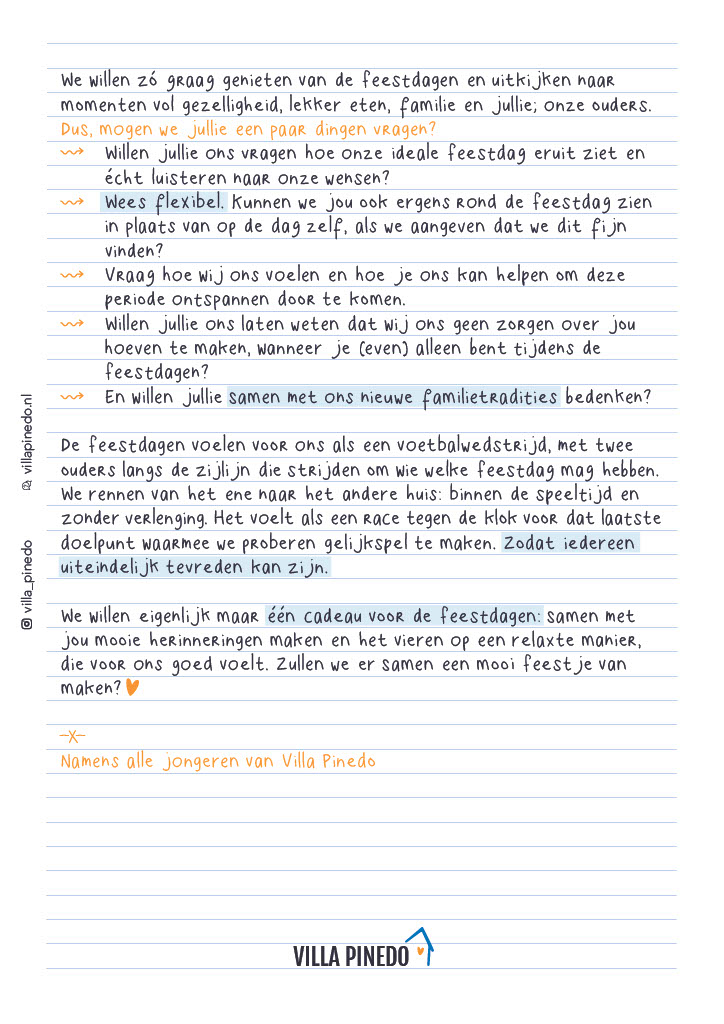 We willen zó graag genieten van de feestdagen en uitkijken naar
momenten vol gezelligheid, lekker eten, familie en jullie; onze ouders.
Dus, mogen we jullie een paar dingen vragen?
Willen jullie ons vragen hoe onze ideale feestdag eruit ziet en
écht luisteren naar onze wensen?
Wees flexibel. Kunnen we jou ook ergens rond de feestdag zien
in plaats van op de dag zelf, als we aangeven dat we dit fijn
vinden?
Vraag hoe wij ons voelen en hoe je ons kan helpen om deze
periode ontspannen door te komen.
Willen jullie ons laten weten dat wij ons geen zorgen over jou
hoeven te maken, wanneer je (even) alleen bent tijdens de
feestdagen?
En willen jullie samen met ons nieuwe familietradities bedenken?
De feestdagen voelen voor ons als een voetbalwedstrijd, met twee
ouders langs de zijlijn die strijden om wie welke feestdag mag hebben.
We rennen van het ene naar het andere huis: binnen de speeltijd en
zonder verlenging. Het voelt als een race tegen de klok voor dat laatste
doelpunt waarmee we proberen gelijkspel te maken. Zodat iedereen
uiteindelijk tevreden kan zijn.
We willen eigenlijk maar één cadeau voor de feestdagen: samen met
jou mooie herinneringen maken en het vieren op een relaxte manier,
die voor ons goed voelt. Zullen we er samen een mooi feestje van
maken?
-X-
Namens alle jongeren van Villa Pinedo
villapinedo.nl
villa_pinedo
VILLA PINEDO